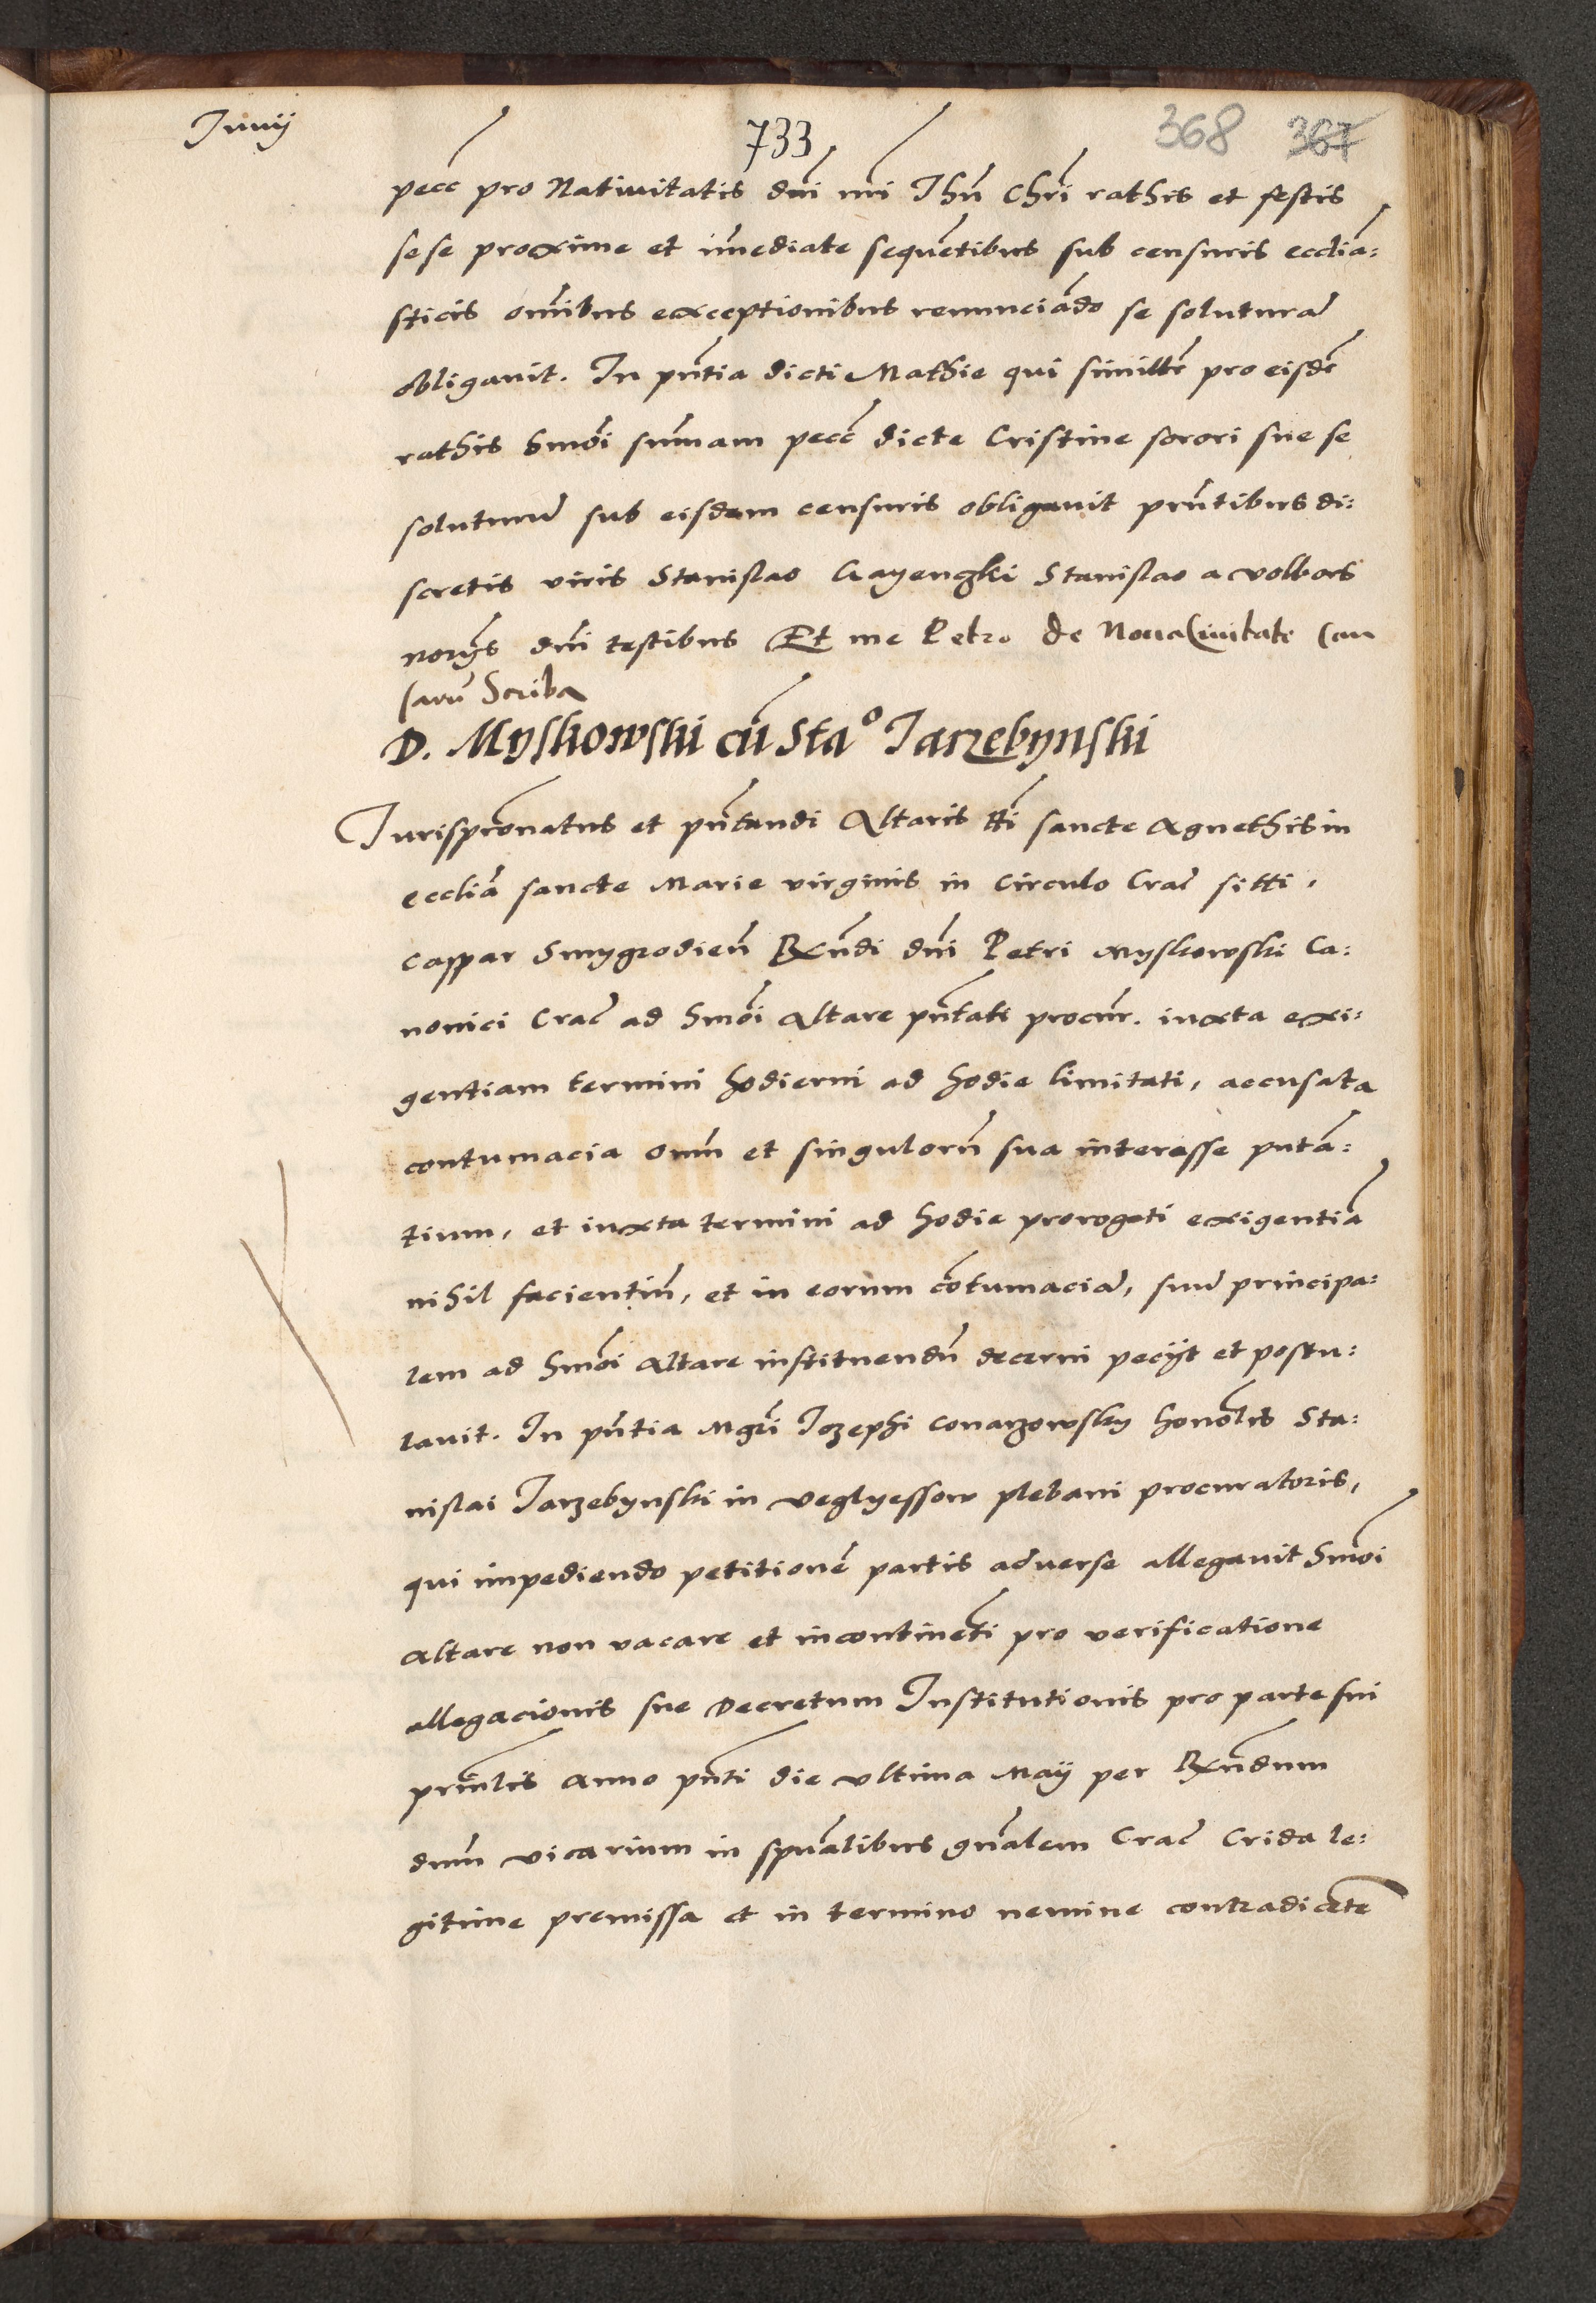 Junij
733
368 367
pecc pro Natiuitatis dni nri Jhu Chri rathis et festis
sese proxime et imediate sequetibus sub censuris ecclia:
sticis omibus exceptionibus renunciado se soluturā
obligauit. In pntia dicti Mathie qui similr pro eisdē
rathis hmoi sumam pecc dicte Cristine sorori sue se
soluturū sub eisdem censuris obligauit pntibus di:
scretis viris Stanislao Gayengki Stanislao a volbors
norijs dni testibus Et me Petro de Noua Ciuitate Cau
sarū Scriba
D. Myskowski cū Sta° Jarzebynski
Jurispronatus et pntandi Altaris tti sancte Agnethis in
ecclia sancte Marie virginis in Circulo Crac sitti,
Caspar Smygrodien Rndi dni Petri Myskowski Ca:
nonici Crac ad hmoi Altare pntati procur. iuxta exi:
gentiam termini hodierni ad hodie limitati, accusata
contumacia oim et singulorū sua interesse putā:
tium, et iuxta termini ad hodie prorogati exigentiā
nihil facientiū, et in eorum cotumaciā, suū principa:
lem ad hmoi Altare instituendū decerni pecijt et postu:
lauit. In pntia Mgri Jozephi Conarzowsky honolis Sta:
nislai Jarzebynski in Veglyessow plebani procuratoris,
qui impediendo petitionē partis aduerse allegauit hmoi
Altare non vacare et incontineti pro verificatione
allegacionis sue Decretum Institutionis pro parte sui
prinlis Anno pnti die vltima Maij per Rndum
dnm vicarium in spualibus gnalem Crac Crida le:
gitime premissa et in termino nemine contradicete